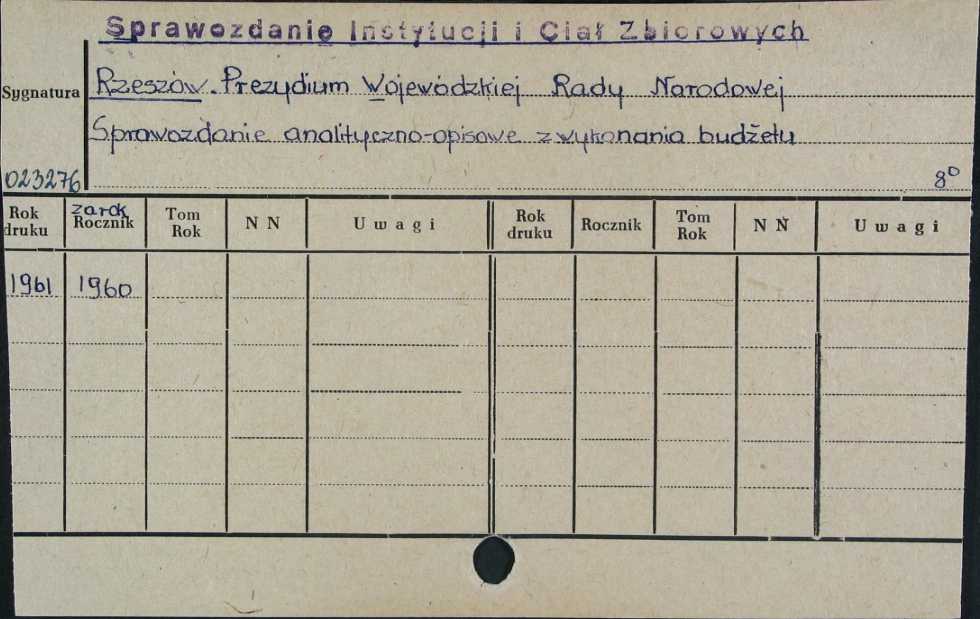 Sprawozdanie Instytucji i Ciał Zbiorowych
Sygnatura
Rzeszów. Prezydium Wojewódzkiej Rady Narodowej
Sprawozdanie analityczno-opisowe z wykonania budżetu
023276
8°
Rok druku
za rok
Rocznik
Tom Rok
N N
Uwagi
Rok druku
Rocznik
Tom Rok
N N
Uwagi
1961 1960